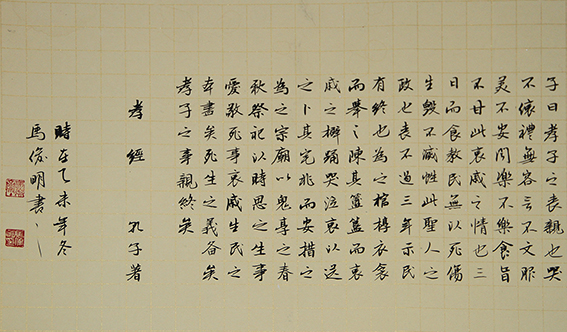 子曰孝子之喪親也哭
不偯禮無容言不文服
美不安聞樂不樂食旨
不甘此哀戚之情也三
日而食教民無以死傷
生毀不滅性此聖人之
政也喪不過三年示民
有終也為之棺椁衣衾
而舉之陳其簠簋而哀
戚之擗踊哭泣哀以送
之卜其宅兆而安措之
為之宗廟以鬼享之春
秋祭祀以時思之生事
愛敬死事哀戚生民之
本盡矣死生之義备矣
孝子之事親終矣
孝經 孔子著
時在乙未年冬
馬俊明書